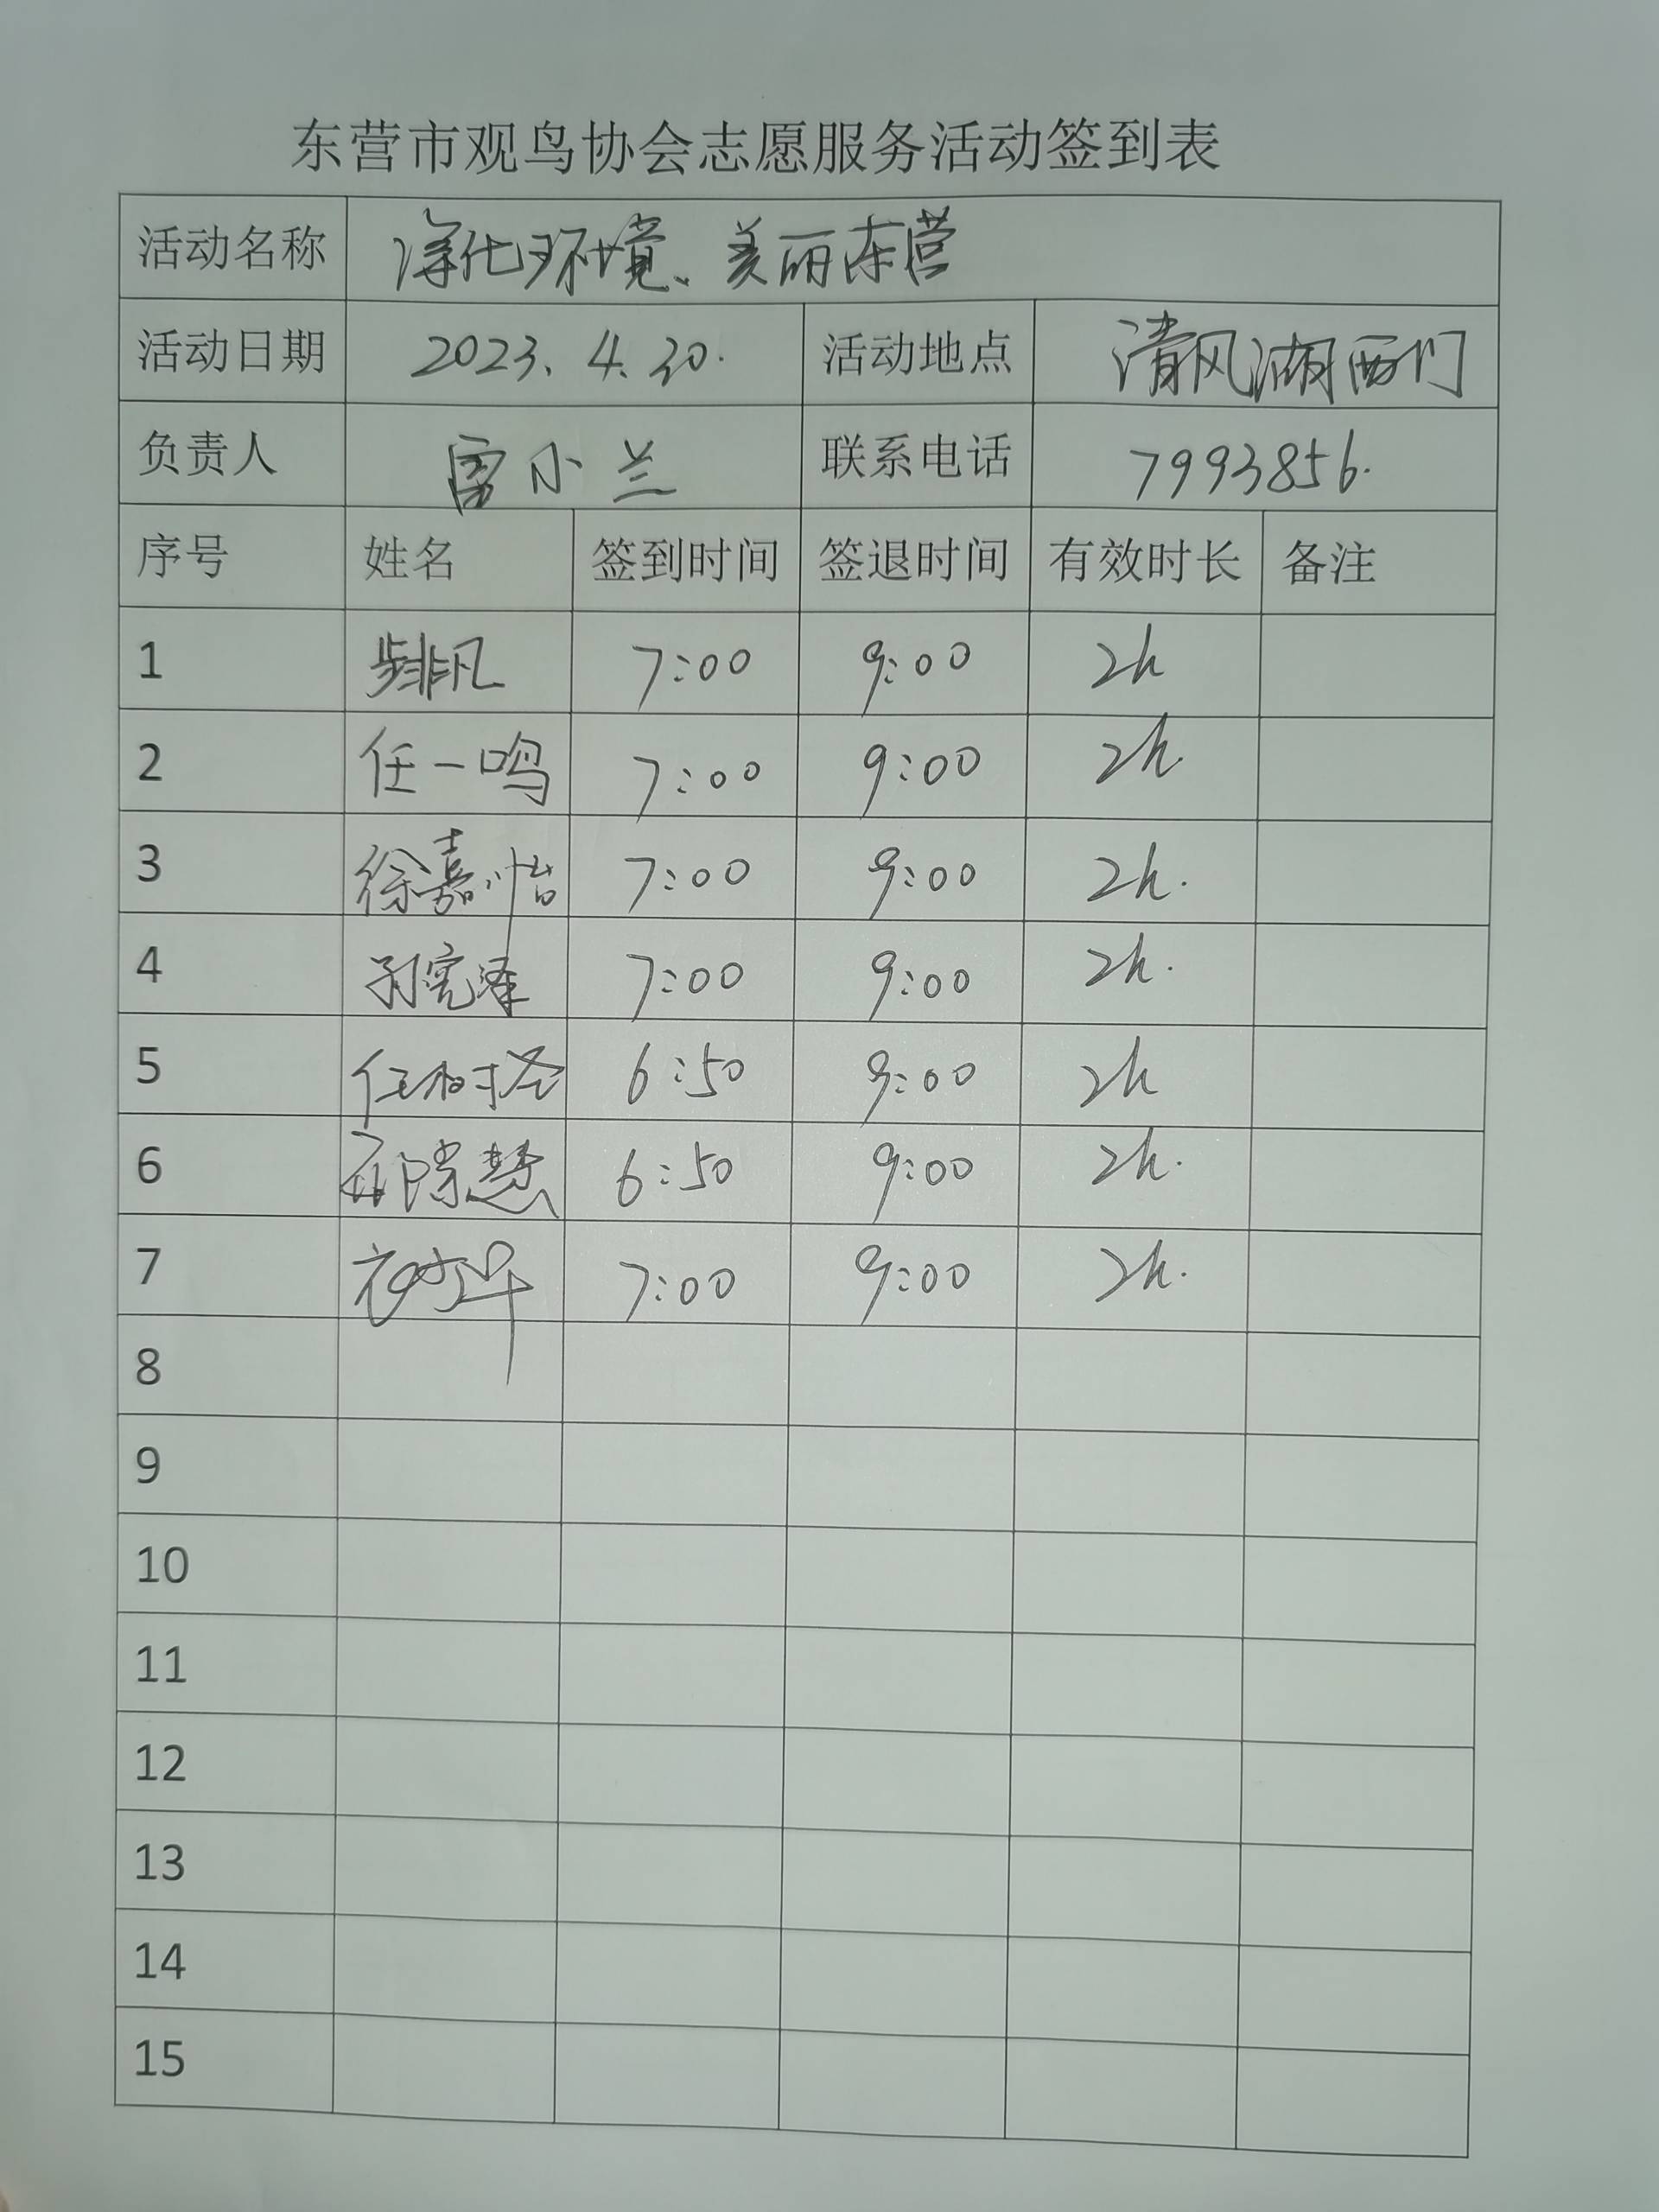 东营市观鸟协会志愿服务活动签到表
活动名称 净化环境、美丽东营
活动日期 2023.4.30. 活动地点 清风湖西门
负责人 雷小兰 联系电话 7993856.
序号 姓名 签到时间 签退时间 有效时长 备注
1 步非凡 7:00 9:00 2h
2 任一鸣 7:00 9:00 2h.
3 徐嘉怡 7:00 9:00 2h.
4 7:00 9:00 2h.
5 任树圣 6:50 9:00 2h
6 6:50 9:00 2h.
7 7:00 9:00 2h.
8
9
10
11
12
13
14
15